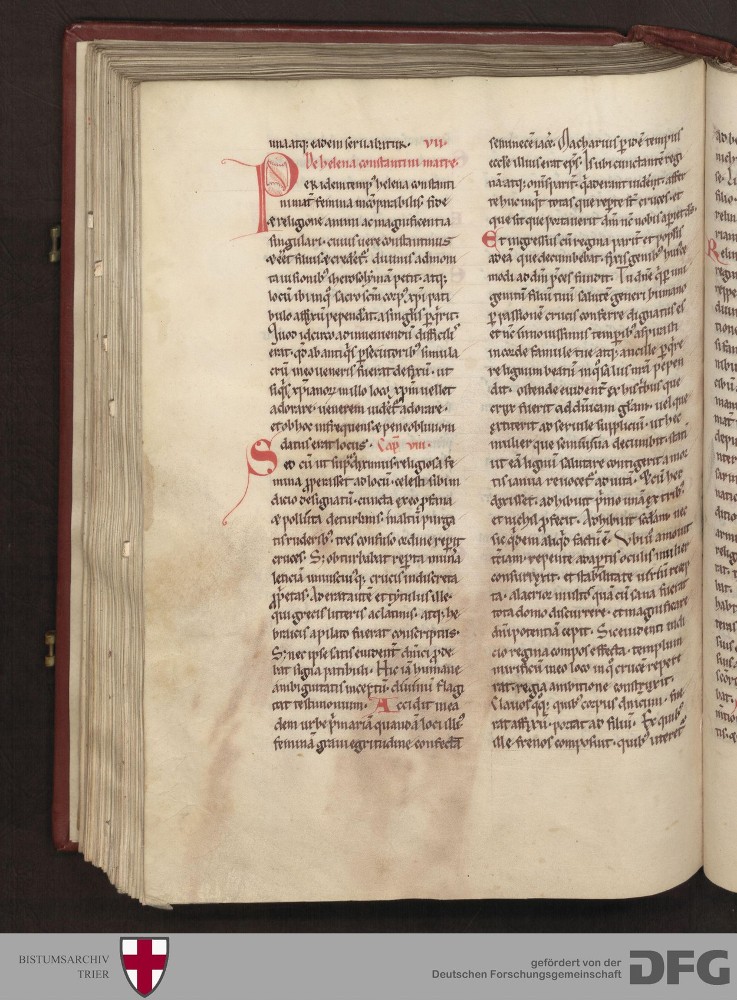 una atq; eadem seruabatur. VII.
De helena constantini matre.
Per idem temp⁹ helena constanti
ni mat̄ femina incōparabilis fide
& religione animi ac magnificentia
singulari. cuius uere constantinus
& eēt filius & crederet̄. diuinis admoni
ta uisionib⁹ iherosolymam petit. atq;
locū ibi in q̊ sacrosc̄m corp⁹ xp̄i pati
bulo affixū pependerat. a singlis ꝑq̇rit.
Quod idcirco ad inueniendū difficile
erat. qd̄ ab antiq̇s ꝑsecutorib⁹ simula
crū in eo ueneris fuerat defixū. ut
siq̇s xp̄ianoꝝ in illo loco xp̄m uellet
adorare. uenerem uideret̄ adorare.
et ob hoc infrequens & pene obliuioni
datus erat locus. Cap̄ VIII.
Sed cū ut sup̄ diximus religiosa fe
mina ꝓperasset ad locū. celesti sibi in
dicio designatū. cuncta ex eo ꝓfana
& polluta deturbans. in altū purga
tis ruderib⁹. tres confuso ordine repperit
cruces. S; obturbabat reperta mune
leticiam uniuscuiusq; crucis indiscreta
ꝓprietas. Aderat autē et tytulus ille.
qui grecis litteris ac latinis. atq; he
braicis a pilato fuerat conscriptus.
S; nec ipse satis euidenter dn̄ici ꝓde
bat signa patibuli. Hic iā humane
ambiguitatis incertū. diuinū flagi
tat testimonium. Accidit in ea
dem urbe p̄mariam quandā loci illi⁹
feminā graui egritudine confectā
seminece iacere. Macharius ꝑ idē tempus
eccl̄e illius erat ep̄s. Is ubi cunctante regi
nā atq; om̄s parit̄. q̇ aderant uidens. affer
te huc inq̇t totas que reperte st̄ cruces. et
que sit que portauerit dn̄m nc̄ nobis aperiet ds̄.
Et ingressus cū regina parit̄ et populis
ad eā que decumbebat. fixis genib⁹ hui⁹ce
modi ad dn̄m p̄ces fundit. Tu dn̄e q̇ ꝑ uni
genitū filiū tuū salutē generi humano
ꝑ passionē crucis conferre dignatus es
et nc̄ in nouissimis temporib⁹ aspirasti
in corde famule tue atq; ancille ꝑq̇re
re lignum beatū in q̊ salus nr̄a pepen
dit. ostende euident̄ ex his trib⁹ que
crux fuerit ad dn̄icam gl̄am. uel que
extiterit ad seruile supplicīū. ut hec
mulier que semiuiua decumbit. stati
ut eā lignū salutare contigerit a mor
tis ianuis reuocet̄ ad uitā. & cū hec
dixisset. adhibuit p̄mo unā ex trib⁹.
et nichil ꝓfecit. Adhibuit sc̄dam nec
sic q̇dem aliq̇d factū ē. Ubi ū amouit
terciam. repente adaptis oculis mulier
consurrexit. et stabilitate uirium recep
ta. alacrior multo quā cū sana fuerat
tota domo discurrere. et magnificare
dn̄i potentiā cepit. Sic euidenti indi
cio regina compos effecta. templum
mirificū in eo loco in q̊ crucē reppere
rat. regia ambitione construxit.
Clauos q;q; quib⁹ corpus dn̄icum. fue
rat affixū. portat ad filiū. Ex quib⁹
ille frenos composuit. quib⁹ uteret̄
BISTUMSARCHIV
TRIER
gefördert von der
Deutschen Forschungsgemeinschaft
DFG